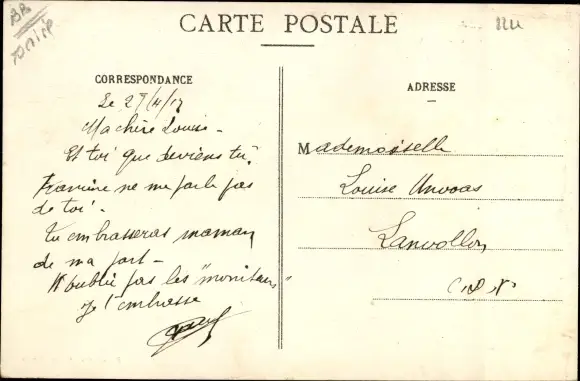 CARTE POSTALE
CORRESPONDANCE
Le 27/4/17
Ma chère Louise -
Et toi que deviens tu,
ne me parle pas
de toi -
tu embrasseras maman
de ma part -
N'oublie pas les "moniteurs"
Je t'embrasse
ADRESSE
Mademoiselle
Louise
Lanvollon
C. d. N.